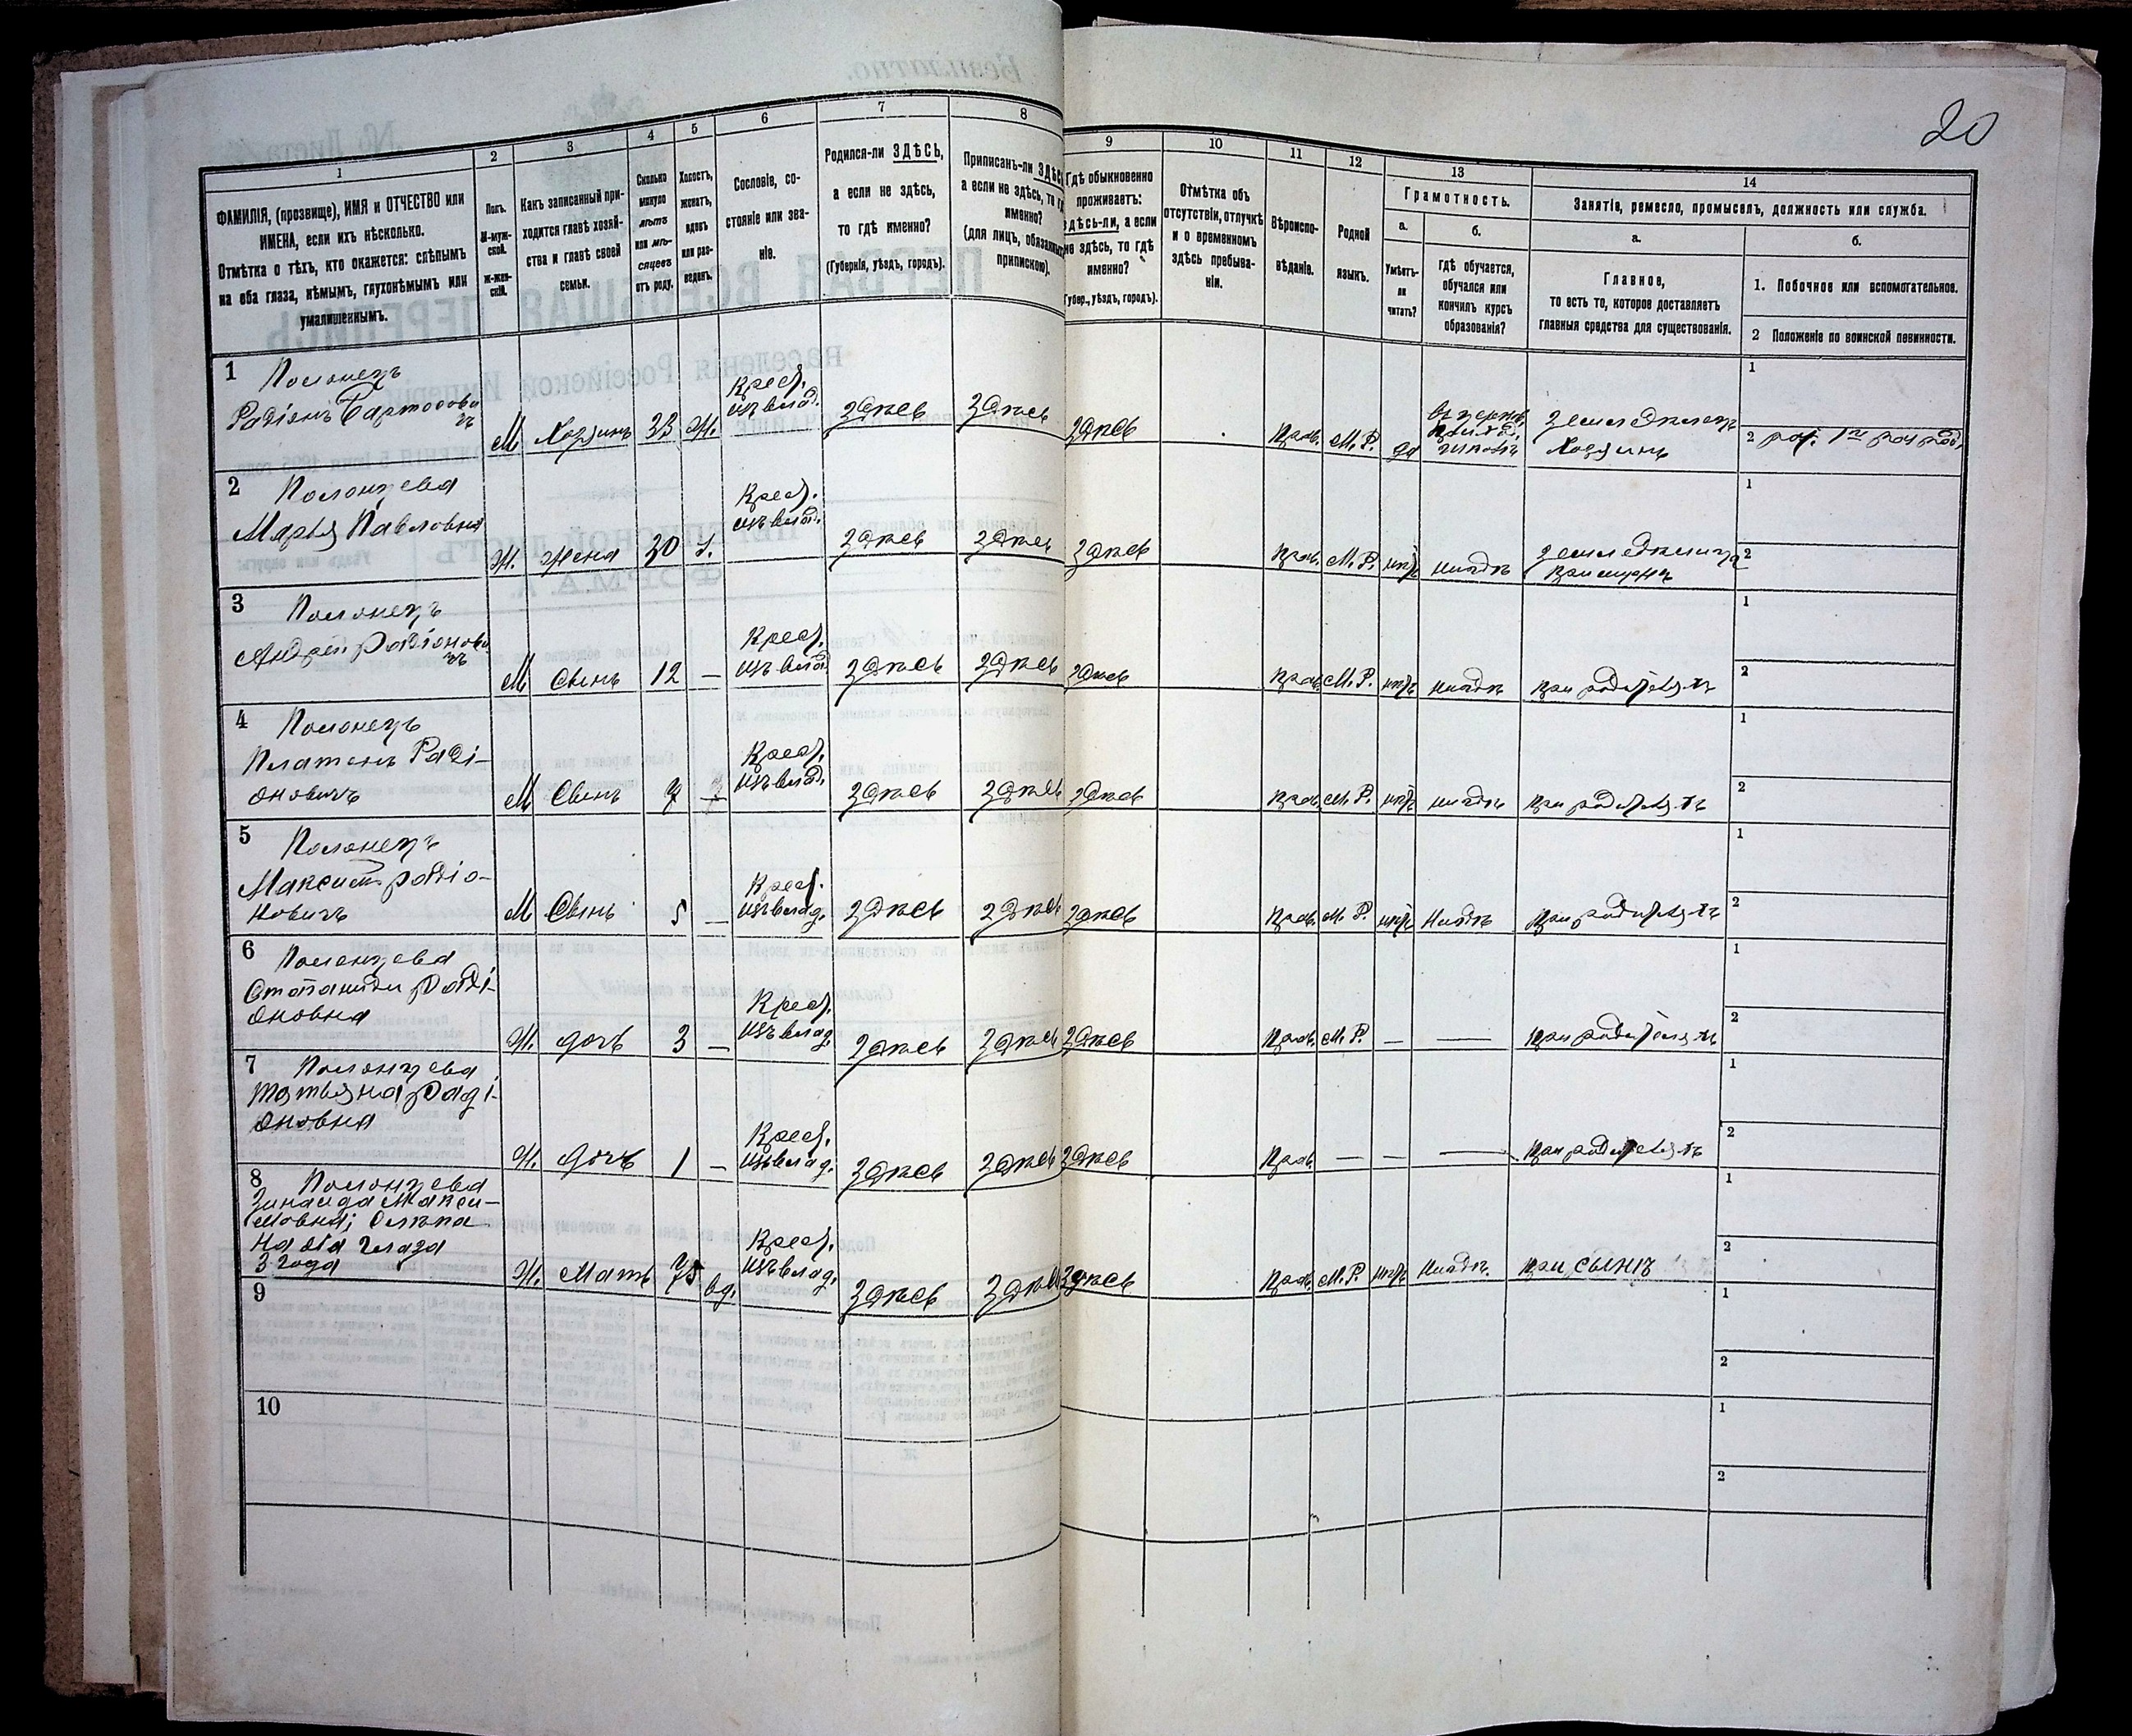 20
1
2
3
4
5
6
7
8
9
10
11
12
13
14
ФАМИЛІЯ, (прозвище), ИМЯ и ОТЧЕСТВО или
ИМЕНА, если ихъ нѣсколько.
Отмѣтка о тѣхъ, кто окажется: слѣпымъ
на оба глаза, нѣмымъ, глухонѣмымъ или
умалишеннымъ.
Полъ.
М-муж-
ской.
Ж-жен-
скій.
Какъ записанный при-
ходится главѣ хозяй-
ства и главѣ своей
семьи.
Сколько
минуло
лѣтъ
или мѣ-
сяцевъ
отъ роду.
Холостъ,
женатъ,
вдовъ
или раз-
веденъ.
Сословіе, со-
стояніе или зва-
ніе.
Родился-ли ЗДѢСЬ,
а если не здѣсь,
то гдѣ именно?
(Губернія, уѣздъ, городъ).
Приписанъ-ли ЗДѢСЬ
а если не здѣсь, то гд
именно?
(для лицъ, обязанныхъ
припискою).
Гдѣ обыкновенно
проживаетъ:
здѣсь-ли, а если
не здѣсь, то гдѣ
именно?
Губер., уѣздъ, городъ).
Отмѣтка объ
отсутствіи, отлучкѣ
и о временномъ
здѣсь пребыва-
ніи.
Вѣроиспо-
вѣданіе.
Родной
языкъ.
Грамотность.
а.
Умѣетъ-
ли
читать?
б.
гдѣ обучается,
обучался или
кончилъ курсъ
образованія?
Занятіе, ремесло, промыселъ, должность или служба.
а.
Главное,
то есть то, которое доставляетъ
главныя средства для существованія.
б.
1. Побочное или вспомогательное.
2 Положеніе по воинской повинности.
1 Полонецъ
Радіонъ
М Хозяинъ 33 Ж. Крест. изъ влад. здѣсь здѣсь здѣсь Прав. М. Р. да
Земледѣлецъ
Хозяинъ
1
2
2 Полонцева
Марья Павловна
Ж. жена 30 Крест. изъ влад. здѣсь здѣсь здѣсь Прав. М. Р. нѣтъ нигдѣ
1
2
3 Полонецъ
Андрей Радіонови
чъ
М Сынъ 12 — Крест. изъ влад. здѣсь здѣсь здѣсь Прав. М. Р. нѣтъ нигдѣ при родителяхъ
1
2
4 Полонецъ
Платонъ Раді-
оновичъ
М Сынъ 7 — Крест. изъ влад. здѣсь здѣсь здѣсь Прав. М. Р. нѣтъ нигдѣ при родителяхъ
1
2
5 Полонецъ
Максим Радіо-
новичъ
М Сынъ 5 — Крест. изъ влад. здѣсь здѣсь здѣсь Прав. М. Р. нѣтъ Нигдѣ при родителяхъ
1
2
6 Полонцева
Степанида Раді-
оновна
Ж. дочь 3 — Крест. изъ влад. здѣсь здѣсь здѣсь Прав. М. Р. — — при родителяхъ
1
2
7 Полонцева
Татьяна Раді-
оновна
Ж. дочь 1 — Крест. изъ влад. здѣсь здѣсь здѣсь Прав — — — при родителяхъ
1
2
8 Полонцева
Зинаида Макси-
мовна; Слѣпа
на оба глаза
3 года
Ж. Мать 75 вд. Крест. изъ влад. здѣсь здѣсь здѣсь Прав. М. Р. нѣтъ Нигдѣ. при сынѣ
1
2
9
1
2
10
1
2